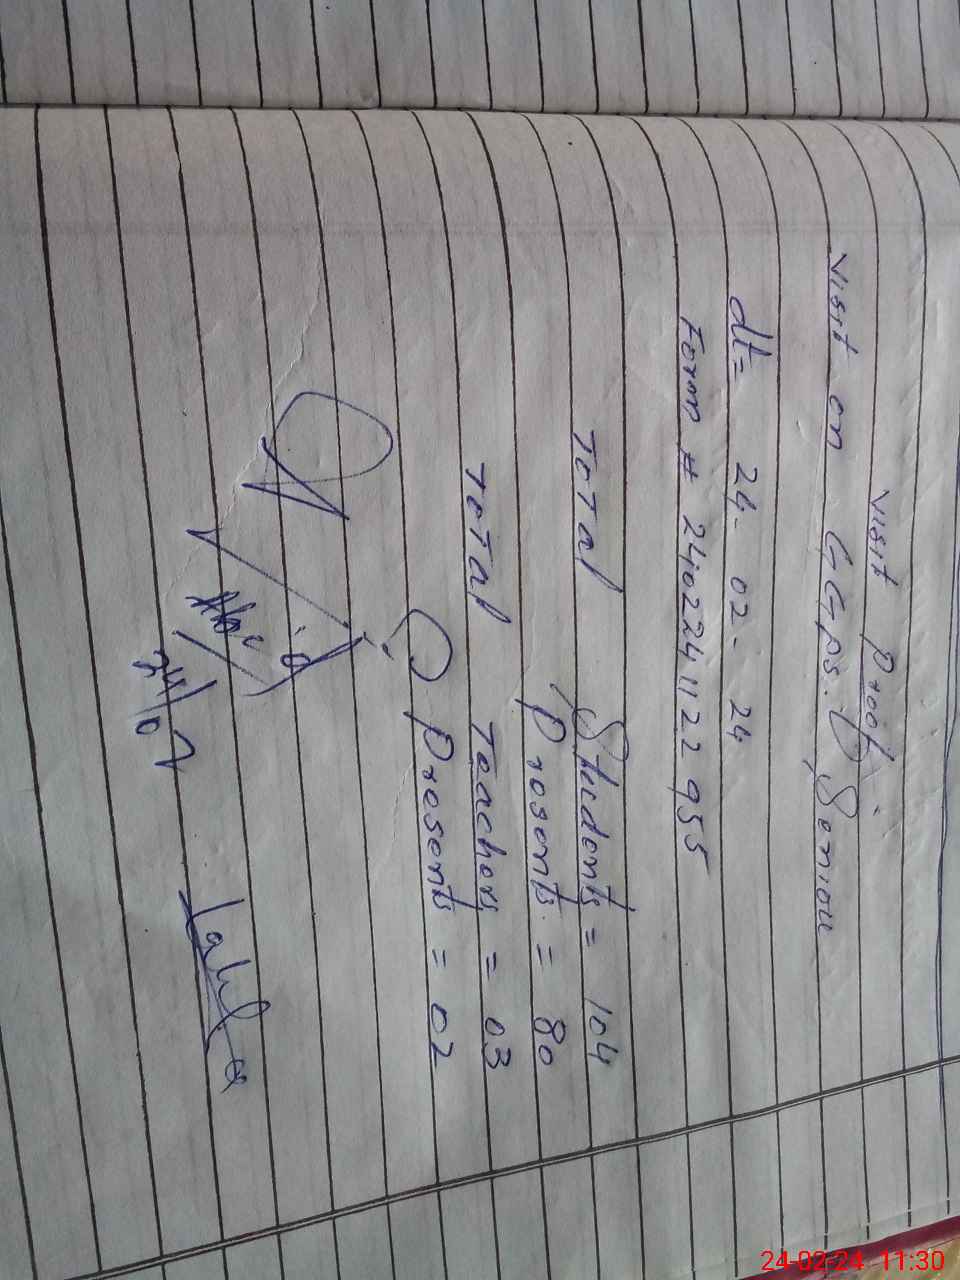 visit Proof
visit on GGps. Somiou
dt= 24-02-24
Form # 2402241122955
Total Students = 104
Prosonts = 80
Total Teachers = 03
Prosents = 02
24/02
24-02-24 11:30